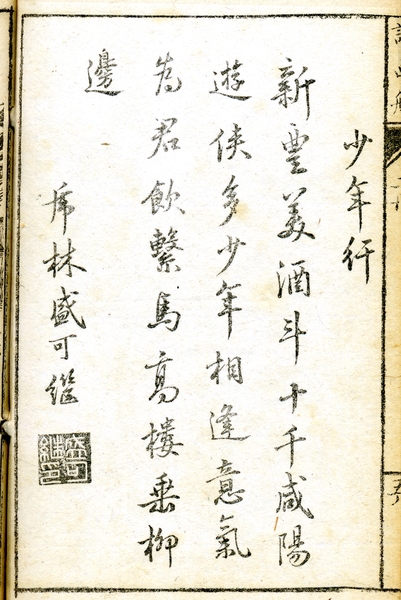 少年行
新豐美酒斗十千咸陽
遊俠多少年相逢意氣
為君飲繫馬高樓垂柳
邊
虎林盛可繼
盛可繼印